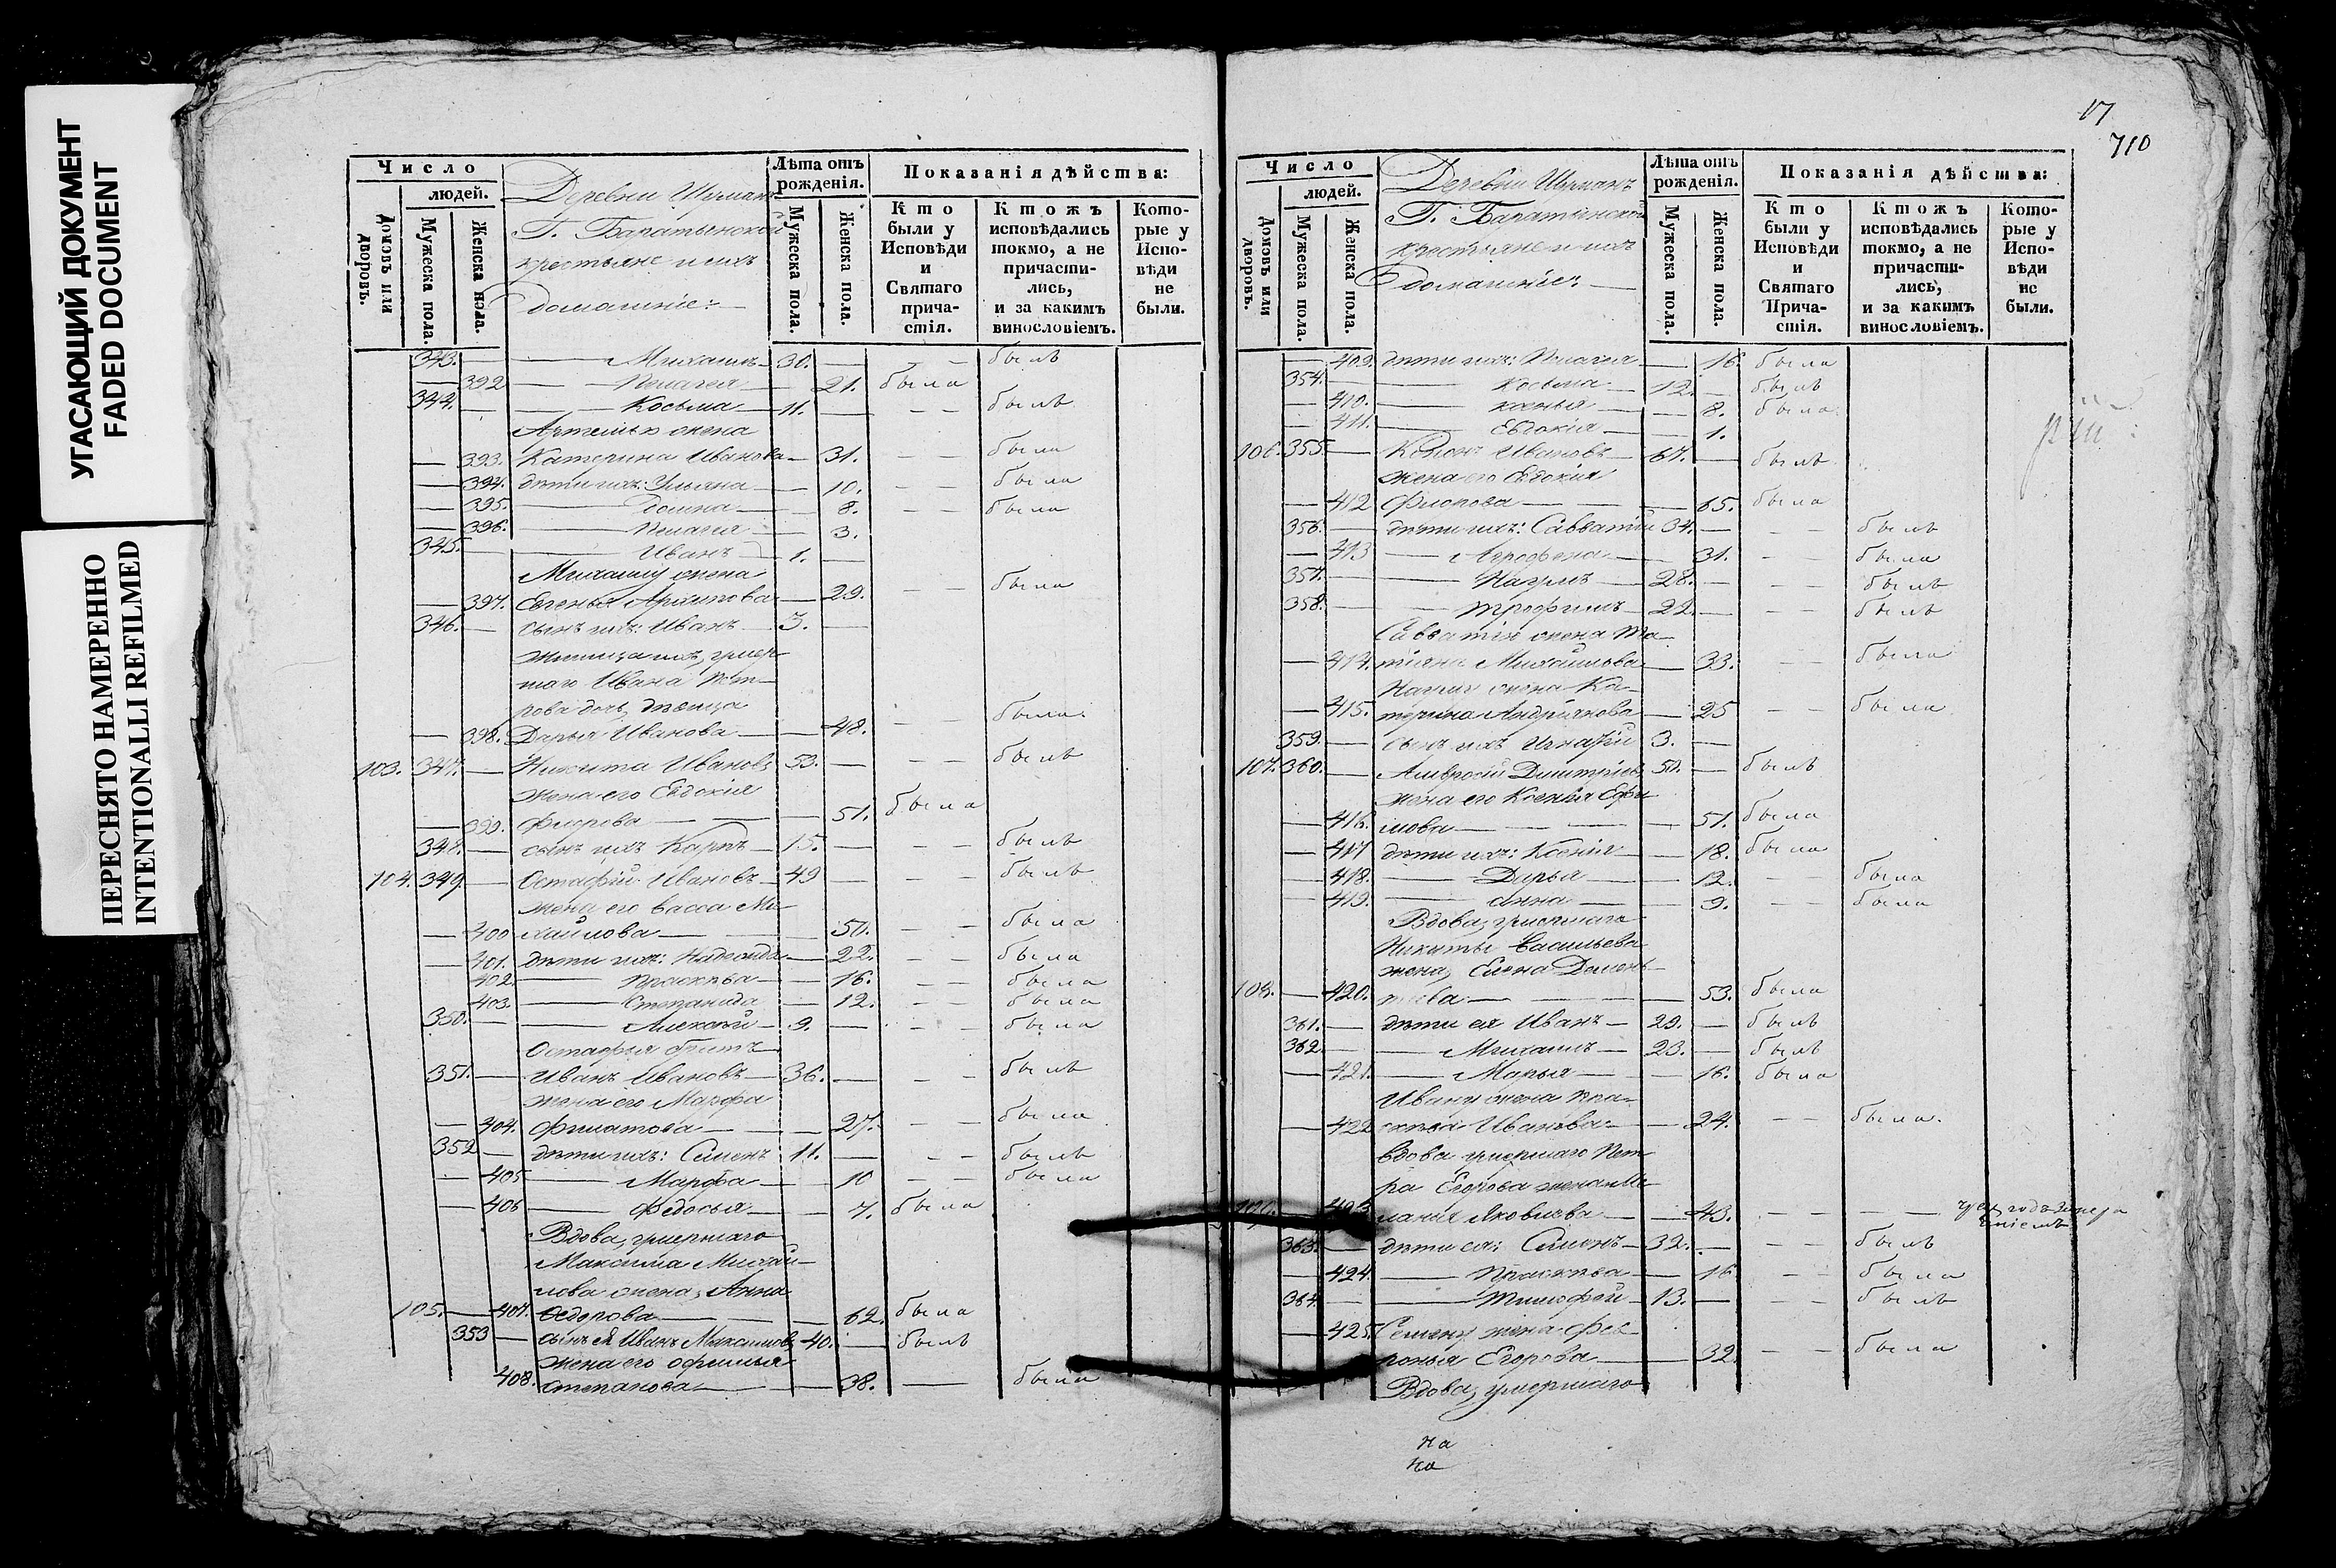 УГАСАЮЩИЙ ДОКУМЕНТ
FADED DOCUMENT
ПЕРЕСНЯТО НАМЕРЕННО
INTENTIONALLI REFILMED
Число
людей.
Домовъ или дворовъ.
Мужеска пола.
Женска пола.
Деревни Шурман
Г. Баратынской
крестьяне и ихъ
домашніе:
Лѣта отъ рожденія.
Мужеска пола.
Женска пола.
Показанія дѣйства:
Кто были у Исповѣди и Святаго причастія.
Ктожъ исповѣдались токмо, а не причастились, и за какимъ винословіемъ.
Которые у Исповѣди не были.
343. — Михаилъ 30. — былъ
392 — Пелагея 21. была
344. — Косьма 11. — былъ
жена
393. Катерина Иванова 31. — была
394. дѣти ихъ: Ульяна 10. — была
395. — Домна 8. — была
396. — Пелагея 3.
345. — Иванъ 1.
Михаилу жена
397. Евгенья Архипова 29. — была
346. сынъ ихъ: Иванъ 3.
умер-
шаго Ивана Пет-
рова дочь, дѣвица
398. Дарья Иванова 48. — была
103. 347. Никита Ивановъ 53. — былъ
жена его Евдокія
399. Флорова 51. была
348. сынъ ихъ Карпъ 15. — былъ
104. 349. Остафій Ивановъ 49 — былъ
жена его Васса Ми-
400 хайлова 50. — была
401. дѣти ихъ: Надежда 22. — была
402. — Прасковья 16. — была
403. — Степанида 12. — была
350. — Алексѣй 9. — была
Остафья братъ
351. Иванъ Ивановъ 36. — былъ
жена его Марфа
404. Филатова 27. — была
352 дѣти ихъ: Семенъ 11. — былъ
405 — Марфа 10 — была
406 — Федосья 7. была
Вдова, умершаго
Максима Михай-
лова жена, Анна
105. 407. Федорова 62. была
353 сынъ ея Иванъ Максимовъ 40. былъ
жена его Офимья
408. Степанова 38. — была
17
710
Число
людей.
Домовъ или дворовъ.
Мужеска пола.
Женска пола.
Деревни Шурманъ
Г. Баратынской
крестьяне и ихъ
домашніе:
Лѣта отъ рожденія.
Мужеска пола.
Женска пола.
Показанія дѣйства:
Кто были у Исповѣди и Святаго Причастія.
Ктожъ исповѣдались токмо, а не причастились, и за какимъ винословіемъ.
Которые у Исповѣди не были.
409. дѣти ихъ: Пелагея 16. была
354. — Косьма 12. былъ
410. — Ксенья 8. была
411. — Евдокія 1.
106. 355. Ивановъ 67. былъ
жена его Евдокія
412 Флорова 65. была
356. дѣти ихъ: Савватій 34. — былъ
413 — Агрофена 31. — была
357. — Наумъ 28. — былъ
358. — Трофимъ 22. — былъ
Савватія жена Та-
414. тіяна Михайлова 33. — была
жена Ка-
415. терина Андріянова 25 — была
359. сынъ ихъ Игнатій 3.
107. 360. Амвросій Дмитріевъ 50. былъ
жена его Ксенья Ефи
416. мова 51. была
417 дѣти ихъ: Ксенія 18. была
418. — Дарья 12. — была
419. — Анна 9. — была
Вдова, умершаго
Никиты Васильева
жена, Елена Демен-
108. 420. тьева 53. была
361. дѣти ея Иванъ 29. былъ
362. — Михаилъ 23. былъ
421. — Марья 16. была
Ивану жена Пра-
422 сковья Иванова 24. — была.
Вдова умершаго Пет
ра Егорова жена Ма-
109. 423 ланія Яковлева 43. —
363. дѣти ея: Семенъ 32. — былъ
424. — Прасковья 16 — была
364. — Тимофей 13. — былъ
425. Семену жена Фев-
ронья Егорова 32. — была
Вдова, умершаго
на
на